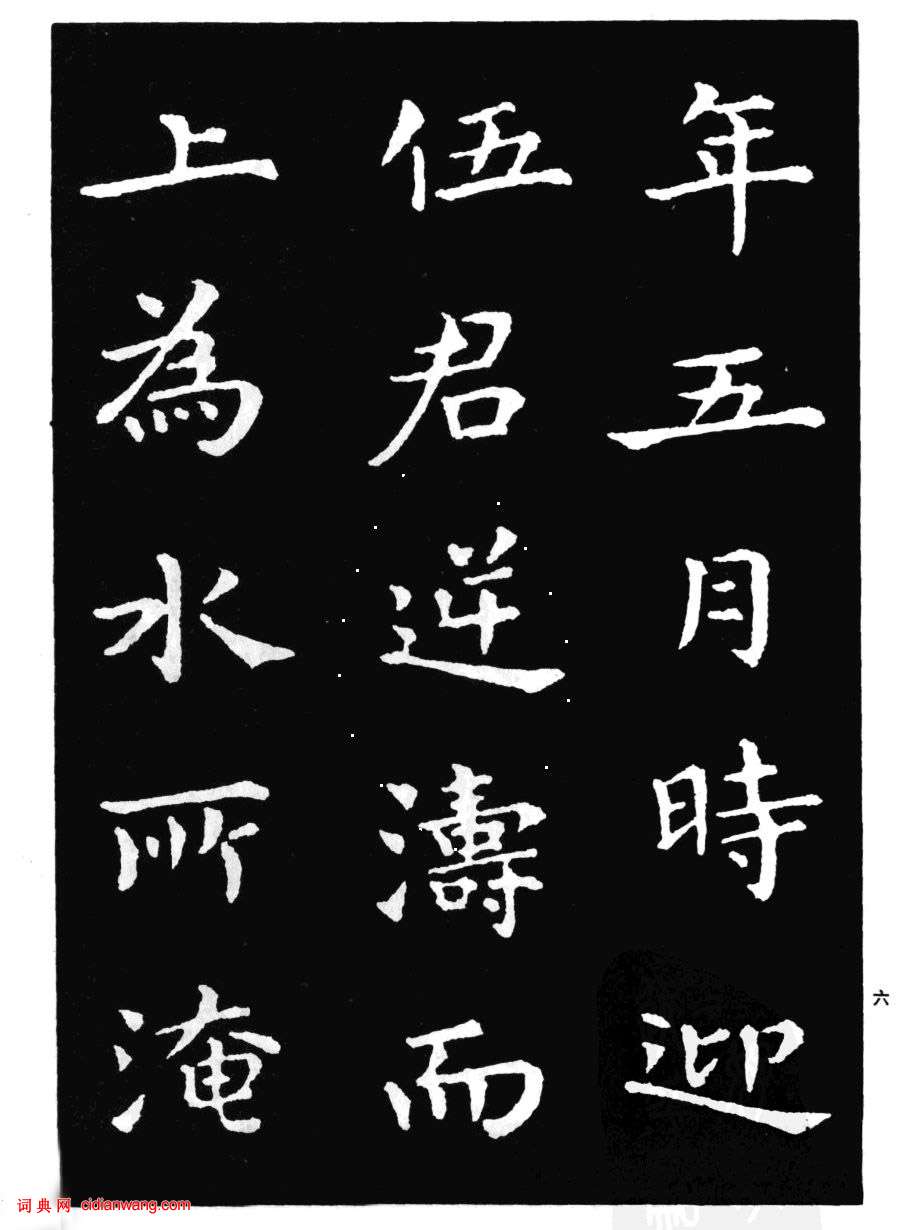 年五月時迎
伍君逆濤而
上為水所淹
六
词典网 cidianwang.com